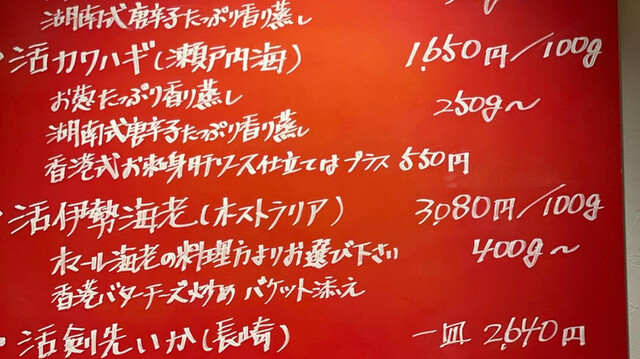 湖南式唐辛子たっぷり香り蒸し
・活カワハギ(瀬戸内海) 1,650円/100g
お葱たっぷり香り蒸し 250g〜
湖南式唐辛子たっぷり香り蒸し
香港式お刺身肝ソース仕立てはプラス550円
・活伊勢海老(オーストラリア) 3,080円/100g
オマール海老の料理方よりお選び下さい 400g〜
香港バターチーズ炒め バケット添え
・活剣先いか(長崎) 一皿 2,640円